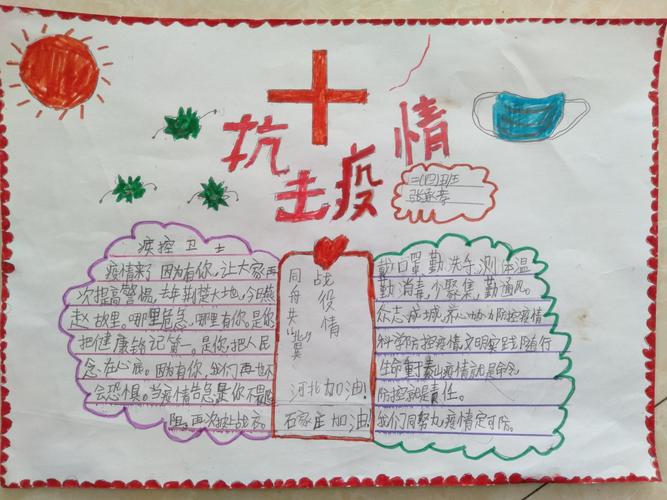 抗击疫情
二(四)班
疾控卫士
疫情来了因为有你,让大家再
次提高警惕,去年荆楚大地,今日燕
赵故里。哪里危急,哪里有你。是你
把健康铭记第一。是你把人民
念在心底。因为有你,我们再也不
会恐惧。当疫情告急是你不畏险
阻,再次披上战衣。
战役情
同舟共"北"冀
河北加油!
石家庄加油!
戴口罩勤洗手,测体温
勤消毒,少聚集,勤通风。
众志成城,防控疫情
科学防控疫情,文明实践随行
生命重于泰山疫情就是命令
防控就是责任。
我们同努力,疫情定可防。